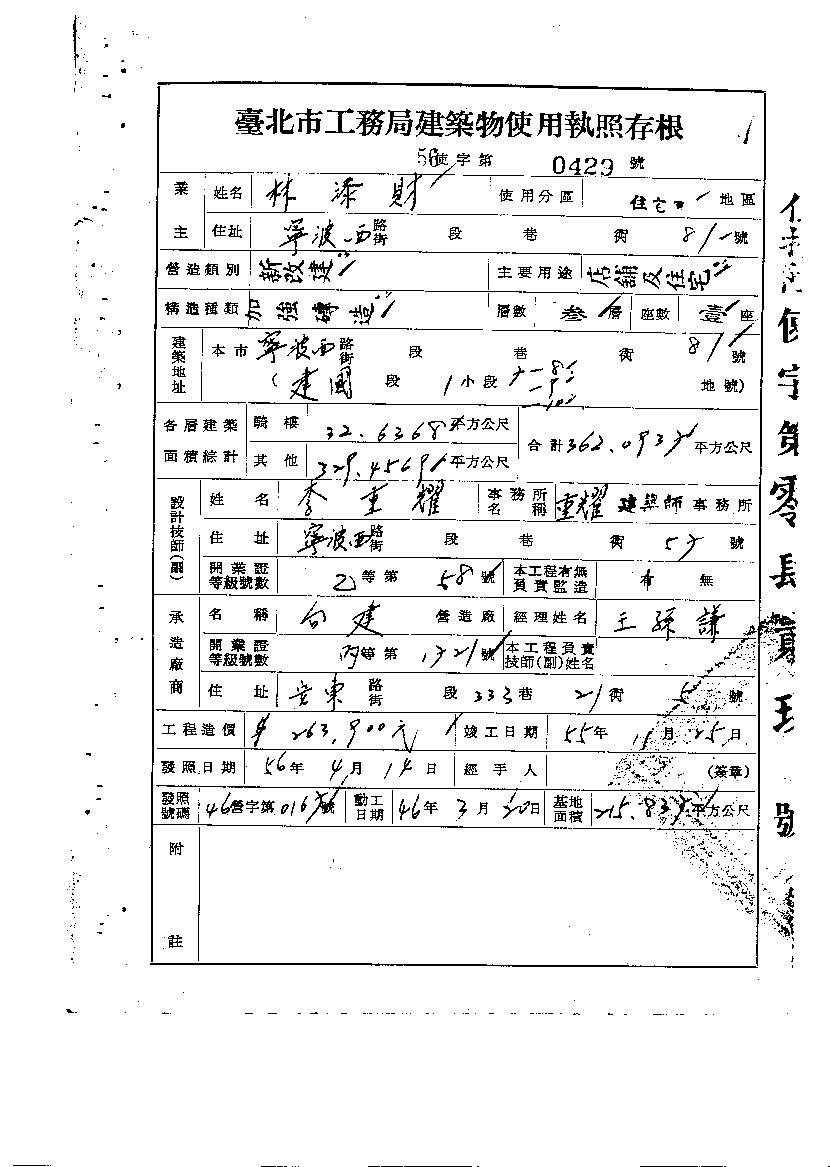 臺北市工務局建築物使用執照存根
56使字第 0429 號
業主 姓名 林添財 使用分區 住宅 地區
住址 寧波西 路街 段 巷 衖 81 號
營造類別 新改建 主要用途 店舖及住宅
構造種類 加強磚造 層數 叁層 座數 壹座
建築地址 本市 寧波西 路街 段 巷 衖 81 號
(建國 段 1 小段 地號)
各層建築面積綜計 騎樓 32.6368 平方公尺 合計 362.0937 平方公尺
其他 329.4569 平方公尺
設計技師(副) 姓名 李重耀 事務所名稱 重耀建築師事務所
住址 寧波西 路街 段 巷 衖 號
開業證等級號數 乙等第 58 號 本工程有無負責監造 有 無
承造廠商 名稱 建 營造廠 經理姓名 王孫謙
開業證等級號數 丙等第 1321 號 本工程負責技師(副)姓名
住址 安東 路街 段 333 巷 21 衖 5 號
工程造價 $263,900元 竣工日期 55年 11月 25日
發照日期 56年 4月 14日 經手人 (簽章)
發照號碼 46營字第 號 動工日期 46年 3月 20日 基地面積 平方公尺
附註